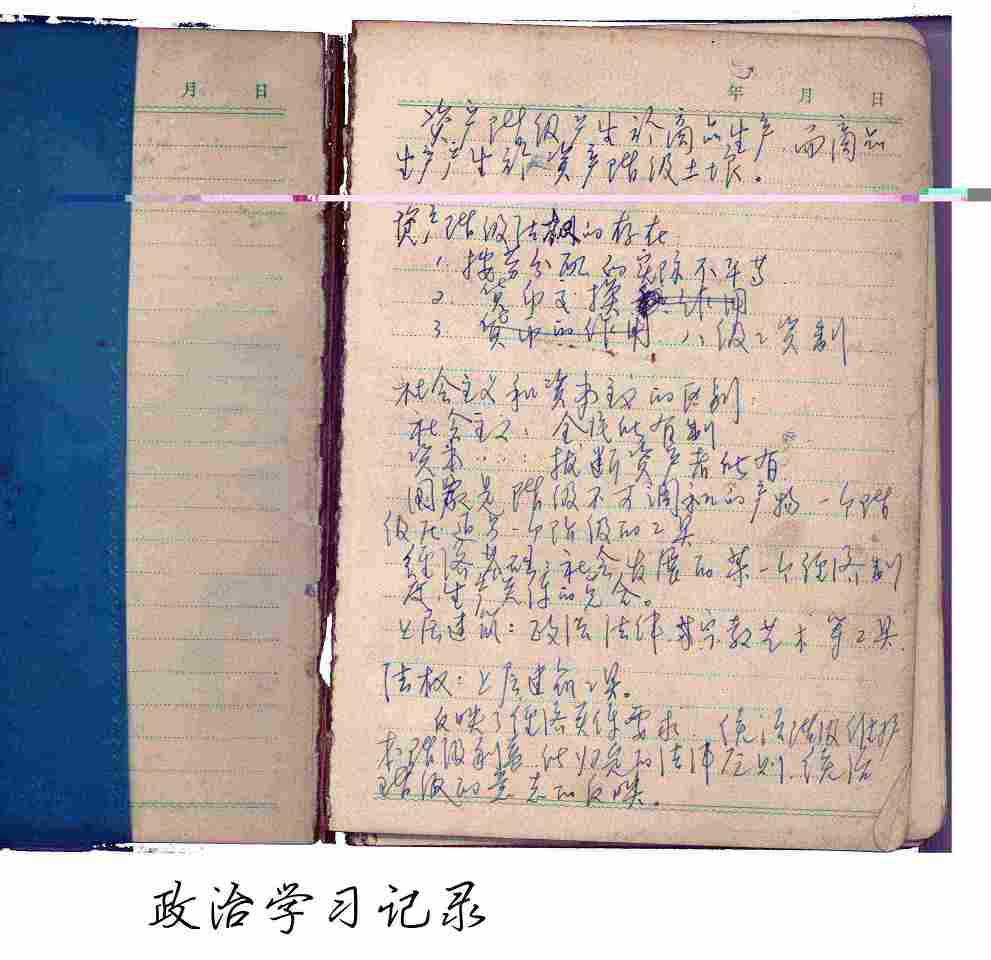 月 日
年 月 日
资产阶级产生於商品生产,而商品
生产产生於资产阶级土壤。
资产阶级法权的存在
1. 按劳分配的实际不平等
2. 货币交换 作用
3. 货币的作用 八级工资制
社会主义和资本主义的区别:
社会主义:全民所有制
资本…:垄断资产者所有.
国家是阶级不可调和的产物 一个阶
级压迫另一个阶级的工具
经济基础:社会发展的某一个经济制
度生产关系的总合。
上层建筑:政治 法律 宗教艺术 等工具.
法权:上层建筑工具。
反映了经济关系要求. 统治阶级维护
本阶级利益所规定的法律原则.统治
阶级的意志的反映。
政治学习记录